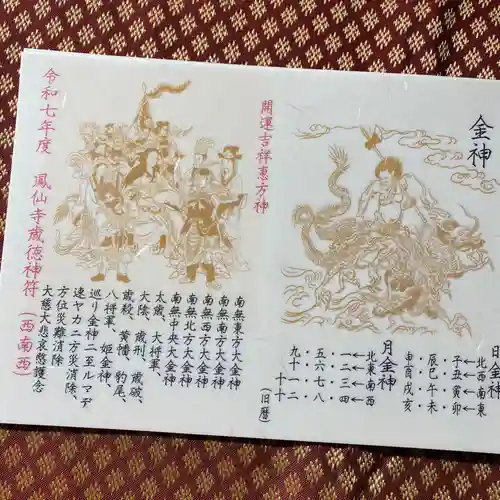 金神
日金神
北西南東
←←←←
子丑寅卯
辰巳午未
申酉戌亥
月金神
北東南西
←←←←
一二三四
五六七八
九十十一十二
(旧暦)
開運吉祥恵方神
南無東方大金神
南無南方大金神
南無西方大金神
南無北方大金神
南無中央大金神
太歳、大将軍、
大陰、歳刑、歳破、
歳殺、黄幡、豹尾、
八将軍、姫金神、
巡り金神ニ至ルマデ
速ヤカニ方災消除、
方位災難消除
大慈大悲哀愍護念
令和七年度 鳳仙寺歳徳神符(西南西)